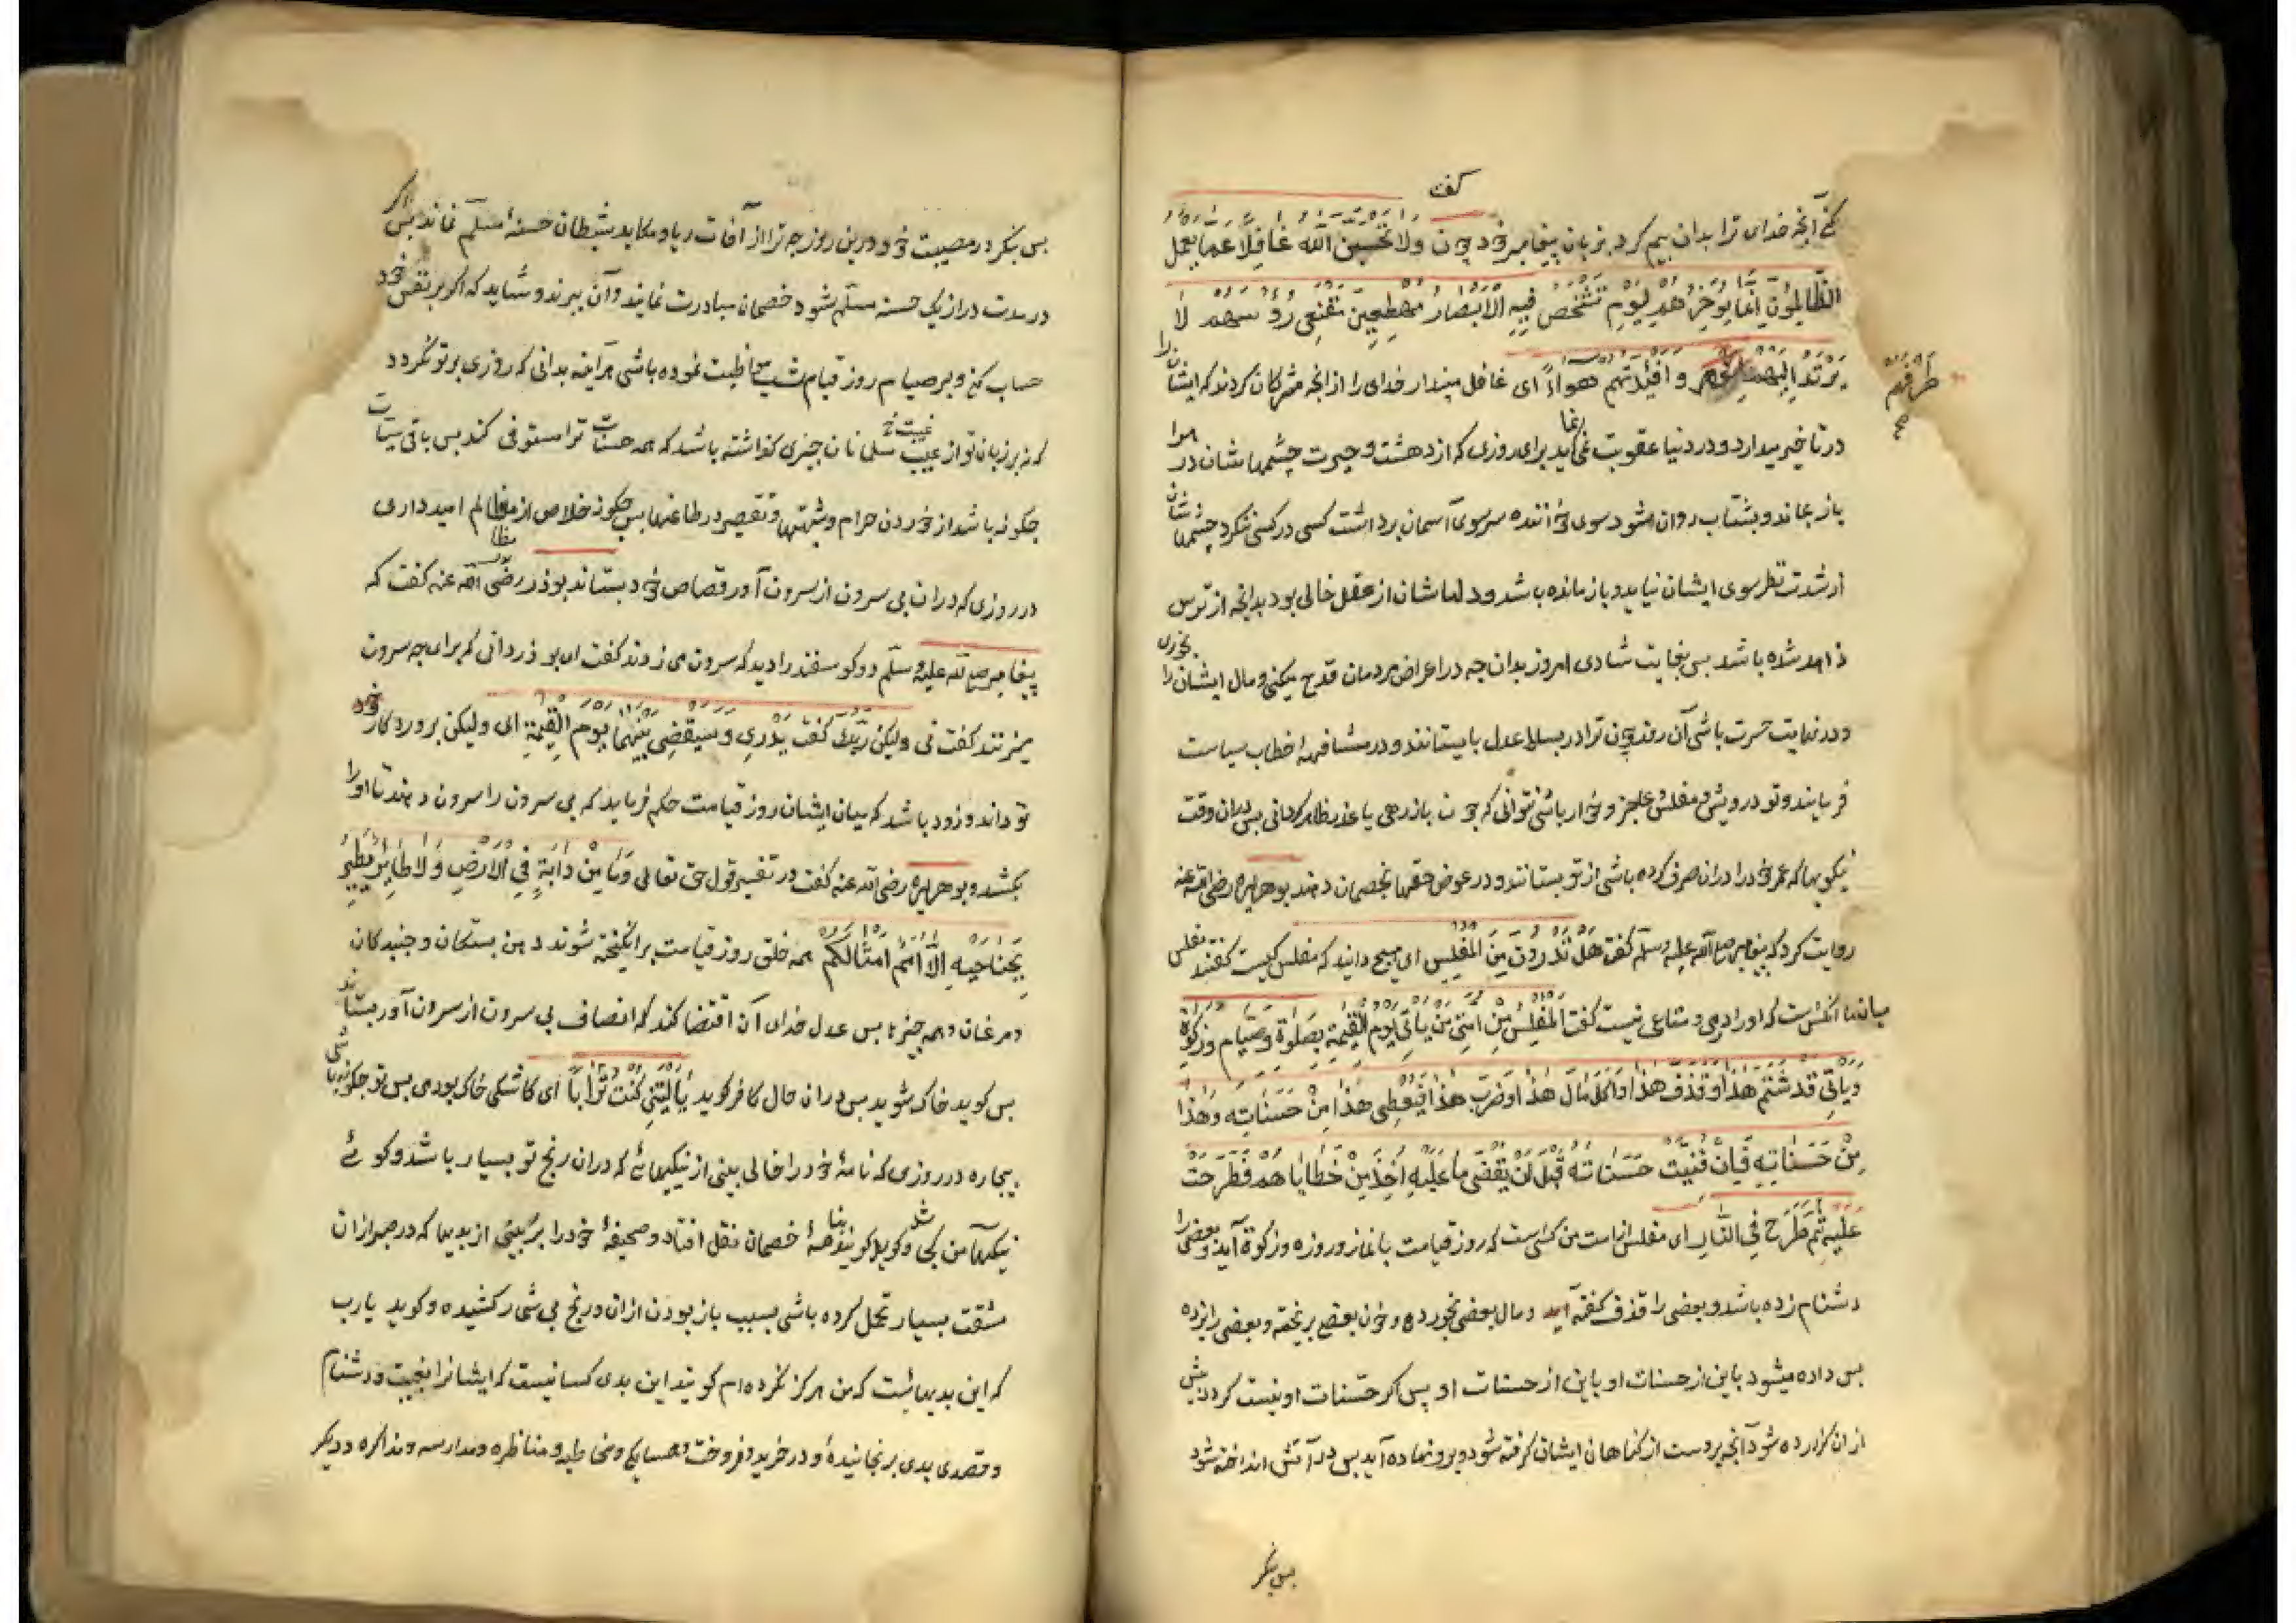 گفت
کنی آنچه خدای ترا بدان بیم کرد بزبان پیغامبر خود چون ولا تحسبن الله غافلا عما یعمل
الظالمون انما یؤخرهم لیوم تشخص فیه الابصار مهطعین مقنعی رؤسهم لا
یرتد الیهم وافئدتهم هواء ای غافل مپندار خدای را از انچه مشرکان کردند که ایشان را
طرفهم
در تاخیر میدارد و در دنیا عقوبت نمی نماید برای روزی که از دهشت و حیرت چشمهاشان در هوا
باز بماند و بشتاب روان شود سوی خواننده سر سوی آسمان برداشت کسی در کسی ننکرد چشمهاشان
از شدت نظر سوی ایشان نیاید و باز مانده باشد و دلهاشان از عقل خالی بود بدانچه از ترس
ذاهد شده باشد بس بغایت شادی امروز بدان چه در اعراض مردمان قدح میکنی و مال ایشان را بخوری
و در نهایت حسرت باشی آن روز چون ترا در بساط عدل بایستانند و در مشافهه خطاب سیاست
فرمایند و تو درویش و مفلس و عاجز و خوار باشی نتوانی که چون باز دهی یا عذر ظاهر کردانی بس دران وقت
نیکویها که عمر خود را دران صرف کرده باشی از تو بستانند و در عوض حقها بخصمان دهند بوهریره رضی الله عنه
روایت کرد که پیغامبر صلی الله علیه وسلم گفت هل تدرون من المفلس ای هیچ دانید که مفلس کیست گفتند مفلس
میان ما انکس است که او را درهمی و متاعی نیست گفت المفلس من امتی من یاتی یوم القیمة بصلوة وصیام وزکوة
ویاتی قد شتم هذا وقذف هذا واکل مال هذا وضرب هذا فیعطی هذا من حسناته وهذا
من حسناته فان فنیت حسناته قبل ان یقضی ما علیه اخذ من خطایاهم فطرحت
علیه ثم طرح فی النار ای مفلس از امت من کسی است که روز قیامت با نماز و روزه و زکوة آید و بعضی را
دشنام زده باشد و بعضی را قذف گفته آید و مال بعضی خورده و خون بعضی ریخته و بعضی را زده
بس داده میشود باین از حسنات او باین از حسنات او پس اکر حسنات او نیست کردد پیش
ازان کزارده شود آنچه بروست از کناهان ایشان کرفته شود و برو نهاده آید بس در آتش انداخته شود
بس بنکر
بس بنکر در مصیبت خود درین روز چه ترا از آفات ریا و مکاید شیطان حسنهٔ مسلم نماند بس اکر
در مدت دراز یک حسنه مسلم شود خصمان مبادرت نمایند و آن ببرند و شاید که اکر بر نفس خود
حساب کنی و بر صیام روز قیام شب مواظبت نموده باشی هر آینه بدانی که روزی بر تو نکردد
که نه بر زبان تو از غیبت مسلمانان چیزی کذاشته باشد که همه حسنات ترا مستوفی کند بس باقی سیئات
چکونه باشد از خوردن حرام و شبهتها و تقصیر در طاعتها بس چکونه خلاص از مظالم امید داری
مظا
در روزی که دران بی سرون از سرون آور قصاص خود بستاند بوذر رضی الله عنه گفت که
پیغامبر صلی الله علیه وسلم دو کوسفند را دید که سرون می زدند گفت ای بوذر دانی که برای چه سرون
میزنند گفت نی ولیکن ربک یدری وسیقضی بینهما یوم القیمة ای ولیکن پروردکار خود
تو داند و زود باشد که میان ایشان روز قیامت حکم فرماید که بی سرون را سرون دهند تا او را
بکشد و بوهریره رضی الله عنه گفت در تفسیر قول حق تعالی وما من دابة فی الارض ولا طایر یطیر
بجناحیه الا امم امثالکم همه خلق روز قیامت برانکیخته شوند دین بستکان و جنبدکان
و مرغان و همه چیزها بس عدل خدای آن اقتضا کند که انصاف بی سرون از سرون آور بستاند
بس کوید خاک شوید بس دران حال کافر کوید یا لیتنی کنت ترابا ای کاشکی خاک بودمی بس تو چکونه باشی
بیچاره در روزی که نامهٔ خود را خالی بینی از نیکیهائے که دران رنج تو بسیار باشد و کوئے
نیکیها من کجا شد و کویند بنا صحیفهٔ خصمان نقل افتاد و صحیفهٔ خود را پر بینی از بدیها که در صبر ازان
مشقت بسیار تحمل کرده باشی بسبب باز بودن ازان و رنج بی شمار کشیده و کوید یا رب
که این بدیهائست که من هرکز نکرده ام کویند این بدی کسانیست که ایشانرا بغیبت و دشنام
و قصدی بدی برنجانیدهٔ و در خرید و فروخت و همسایکی و مخاطبه و مناظره و مدارسه و مذاکره و دیکر